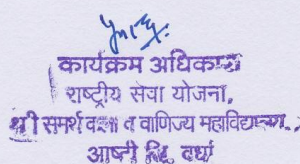 कार्यक्रम अधिकारी
राष्ट्रीय सेवा योजना,
श्री समर्थ कला व वाणिज्य महाविद्यालय,
आष्टी जि. वर्धा